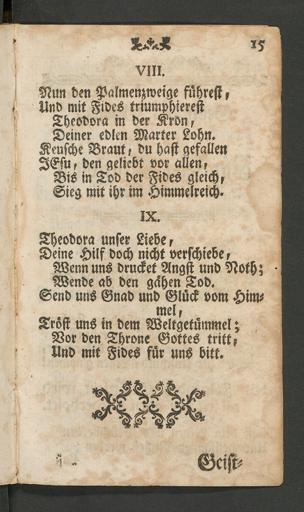 15
VIII.
Nun den Palmenzweige führest,
Und mit Fides triumphierest
Theodora in der Kron,
Deiner edlen Marter Lohn.
Keusche Braut, du hast gefallen
JEsu, den geliebt vor allen,
Bis in Tod der Fides gleich,
Sieg mit ihr im Himmelreich.
IX.
Theodora unser Liebe,
Deine Hilf doch nicht verschiebe,
Wenn uns drucket Angst und Noth;
Wende ab den gähen Tod.
Send uns Gnad und Glück vom Him-
mel,
Tröst uns in dem Weltgetümmel;
Vor den Throne Gottes tritt,
Und mit Fides für uns bitt.
Geist-